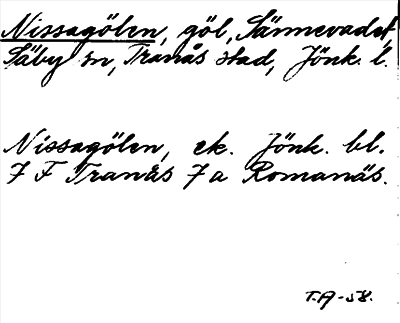 Nissagölen, göl, Sännevadet,
Säby sn, Tranås stad, Jönk. l.
Nissagölen, ek. Jönk. bl.
7 F Tranås 7 a Romanäs.
T.A-58.